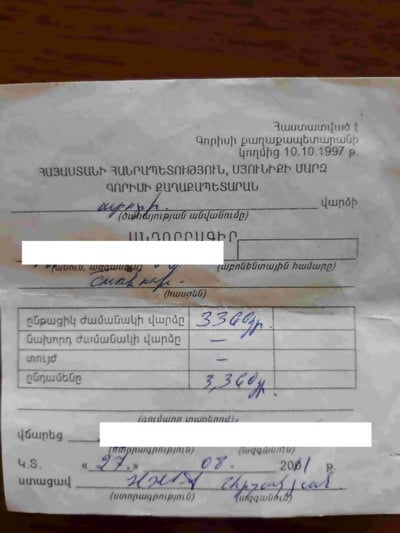 Հաստատված է
Գորիսի քաղաքապետարանի
կողմից 10.10.1997 թ.
ՀԱՅԱՍՏԱՆԻ ՀԱՆՐԱՊԵՏՈՒԹՅՈՒՆ, ՍՅՈՒՆԻՔԻ ՄԱՐԶ
ԳՈՐԻՍԻ ՔԱՂԱՔԱՊԵՏԱՐԱՆ
վարձի
(ծառայության անվանումը)
ԱՆԴՈՐՐԱԳԻՐ
(անուն, ազգանուն) (աբոնենտային համարը)
(հասցեն)
ընթացիկ ժամանակի վարձը 3360 դր.
նախորդ ժամանակի վարձը —
տույժ —
ընդամենը 3,360 դր.
(գումարը տառերով)
վճարեց
(ստորագրություն) (ազգանուն)
Կ.Տ. «27.» 08. 2001 թ.
ստացավ
(ստորագրություն) (ազգանուն)